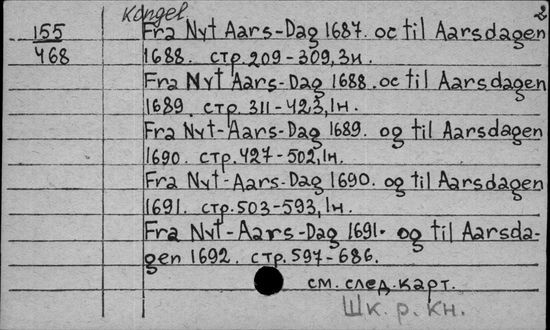 Kongel 2
155 Fra Nyt Aars-Dag 1687. oc til Aarsdagen
468 1688. стр. 209-309, 3н.
Fra Nyt Aars-Dag 1688. oc til Aarsdagen
1689. стр. 311-423, 1н.
Fra Nyt-Aars-Dag 1689. og til Aarsdagen
1690. стр. 427-502, 1н.
Fra Nyt-Aars-Dag 1690. og til Aarsdagen
1691. стр. 503-593, 1н.
Fra Nyt-Aars-Dag 1691. og til Aarsda-
gen 1692. стр. 597-686.
см. след. карт.
Шк. р. кн.